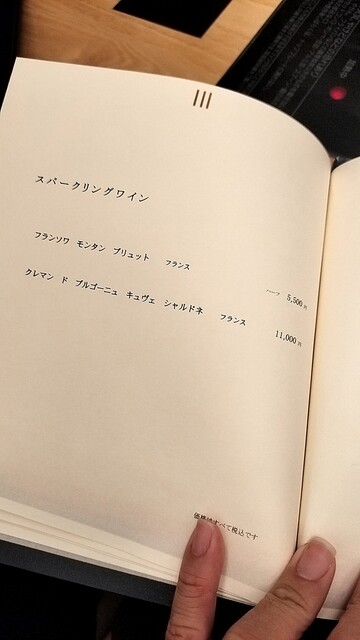 スパークリングワイン
フランソワ モンタン ブリュット フランス ハーフ 5,500円
クレマン ド ブルゴーニュ キュヴェ シャルドネ フランス 11,000円
価格はすべて税込です